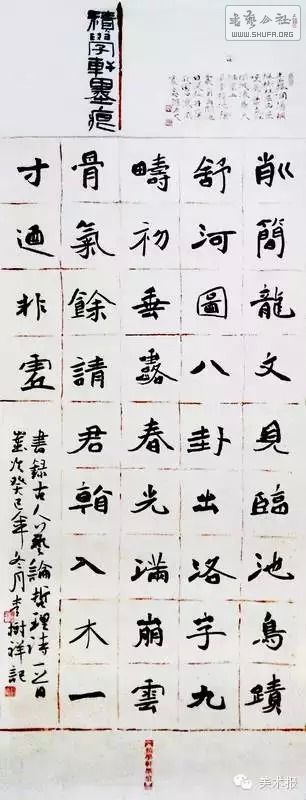 书艺公社
WWW.SHUFA.ORG
積學軒墨痕
削簡龍文見臨池鳥蹟
舒河圖八卦出洛字九
疇初垂露春光滿崩雲
骨氣餘請君看入木一
寸迺非虛
書録古人藝論哲理詩一首
歲次癸巳年冬月李樹祥記
美术报